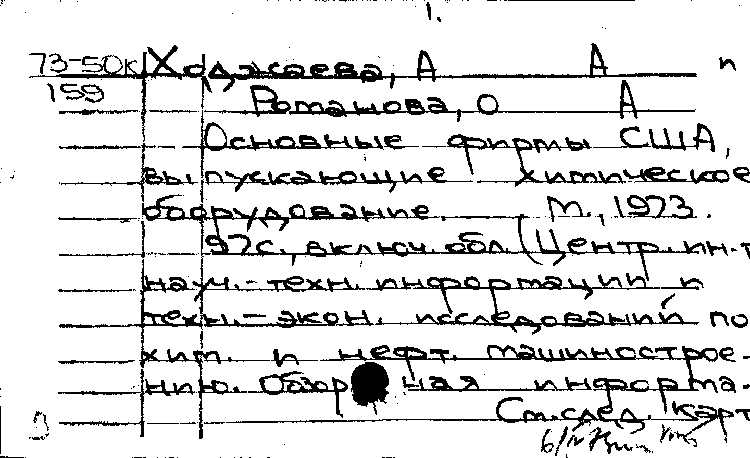 1.
73-50к Ходжаева, А А и
159 Романова, О А
Основные фирмы США,
выпускающие химическое
оборудование. М., 1973.
97с., включ. обл. (Центр. ин-т
науч.-техн. информации и
техн.-экон. исследований по
хим. и нефт. машинострое-
нию. Обзорная информа-
См. след. карт